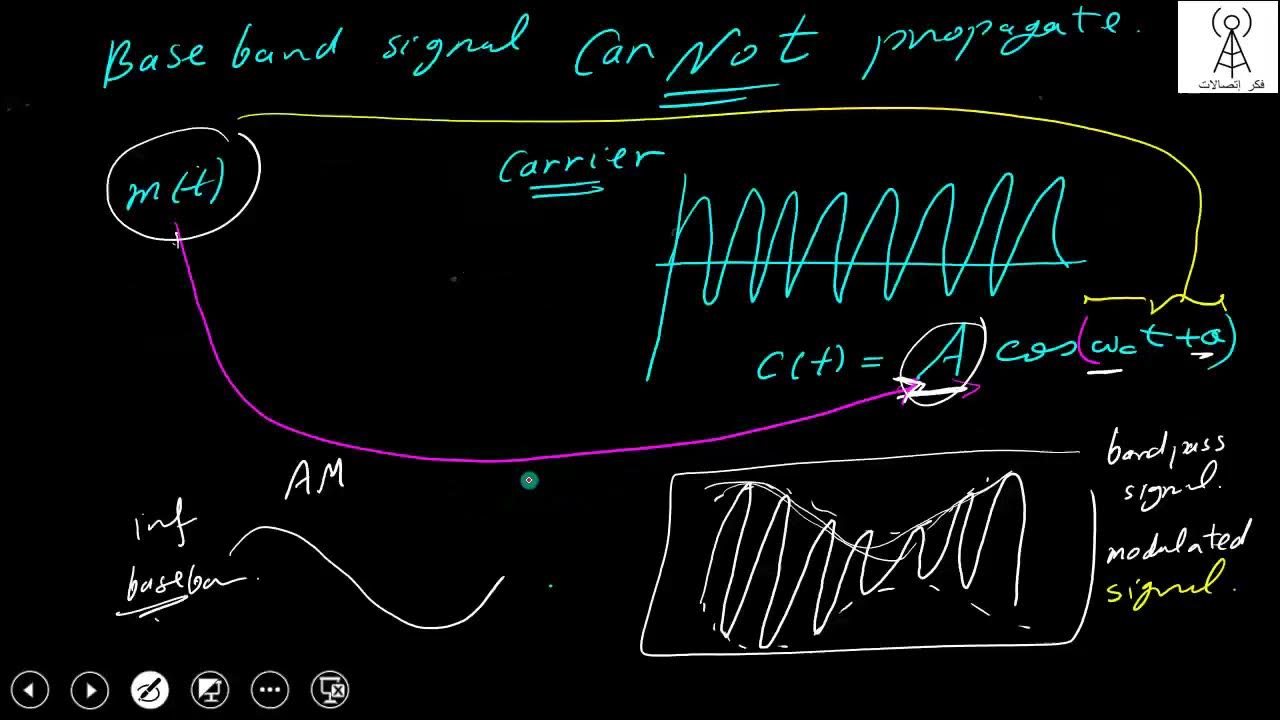 Base band signal Can Not propagate.
فكر إتصالات
m(t)
Carrier
C(t) = A cos(ωc t + θ)
AM
bandpass
signal.
inf
baseban.
modulated
signal.